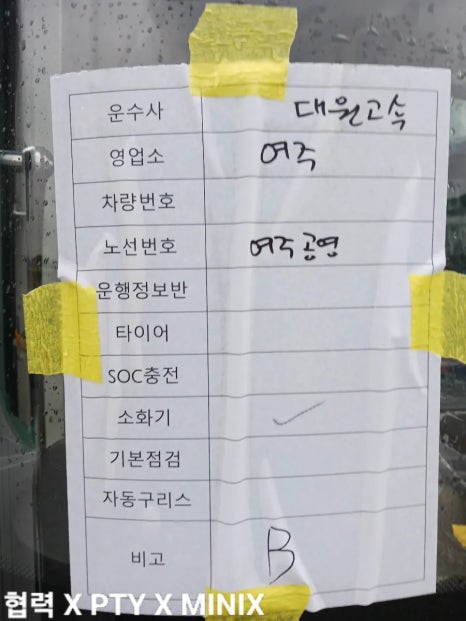 운수사 대원고속
영업소 여주
차량번호
노선번호 여주공영
운행정보반
타이어
SOC충전
소화기 ✓
기본점검
자동구리스
비고 B
협력 X PTY X MINIX